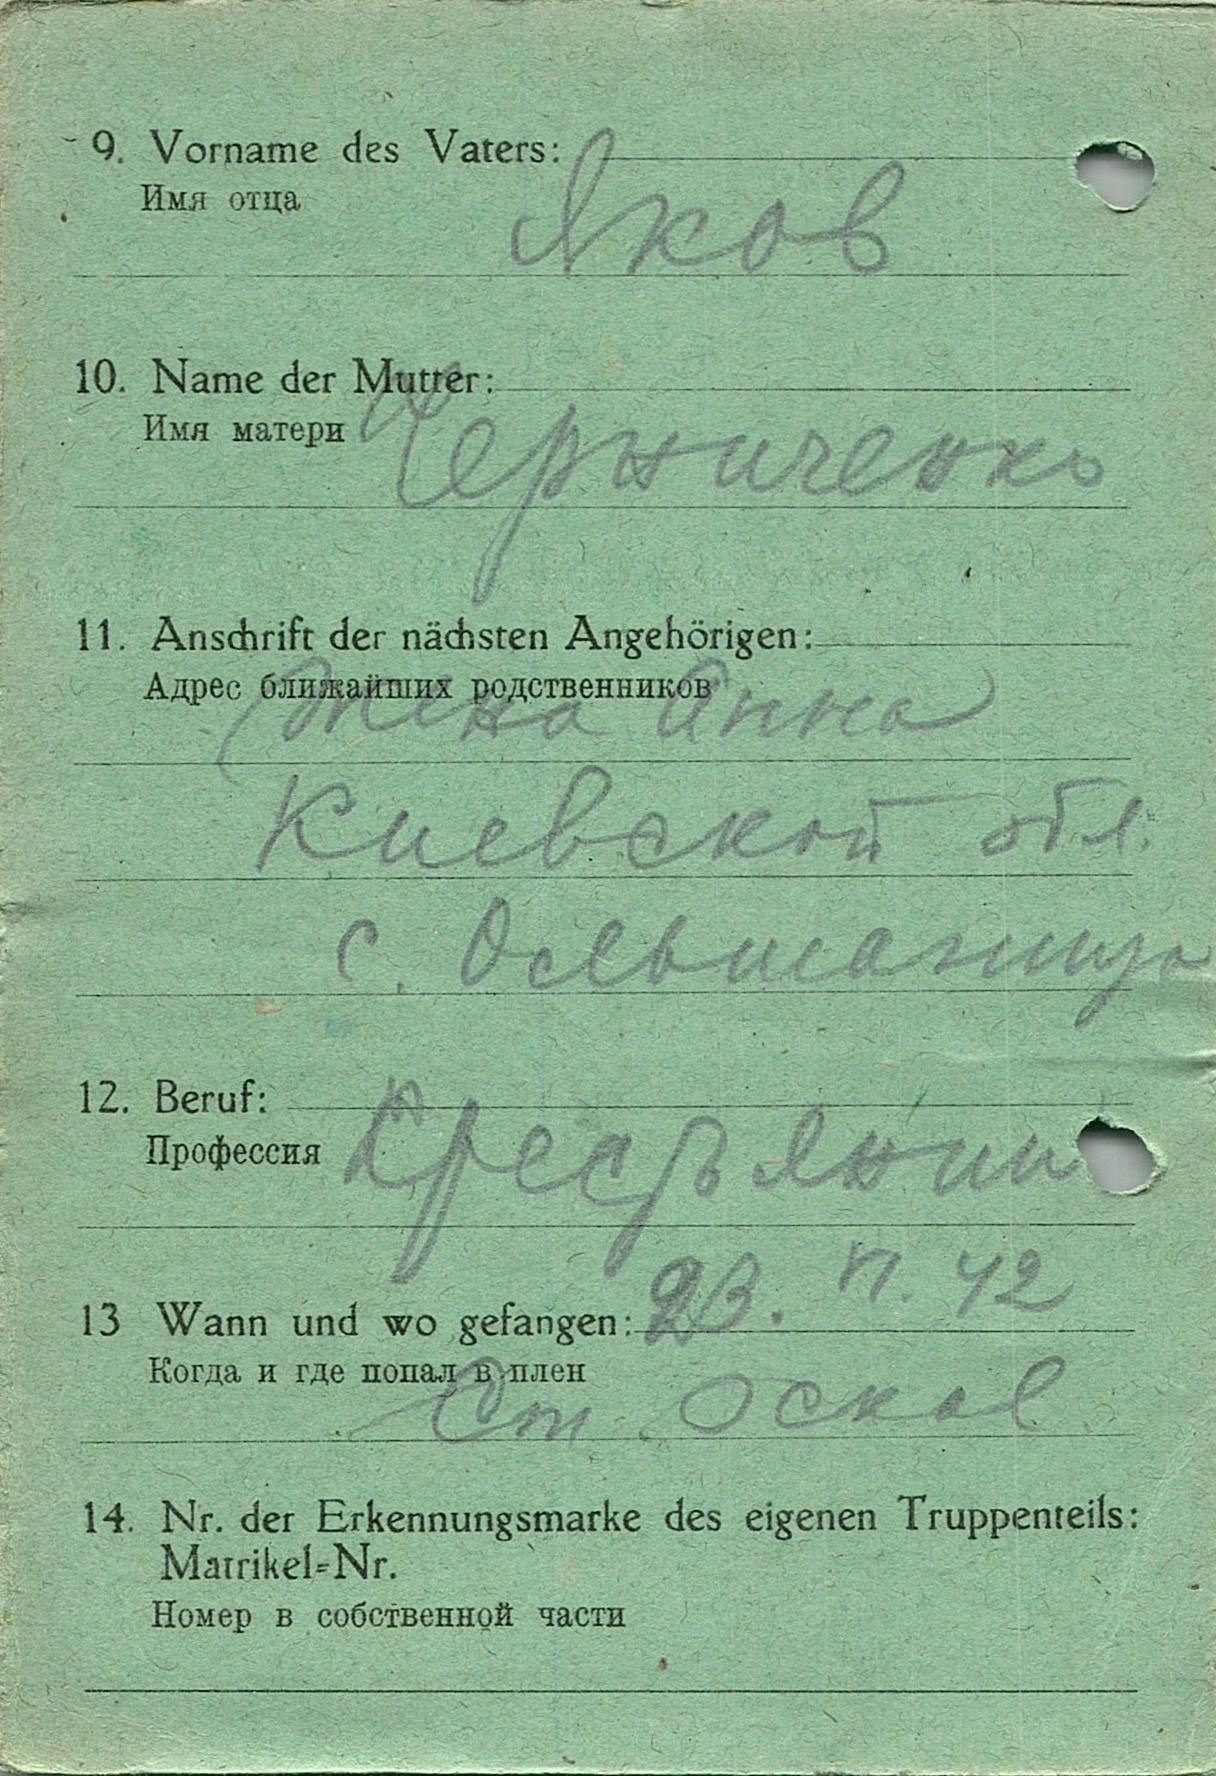 9. Vorname des Vaters:
Имя отца
Яков
10. Name der Mutter:
Имя матери
Черниченко
11. Anschrift der nächsten Angehörigen:
Адрес ближайших родственников
Жена Анна
Киевской обл.
с.
12. Beruf:
Профессия
Крестьянин
13 Wann und wo gefangen: 42
Когда и где попал в плен
Ст. Оскол
14. Nr. der Erkennungsmarke des eigenen Truppenteils:
Matrikel=Nr.
Номер в собственной части